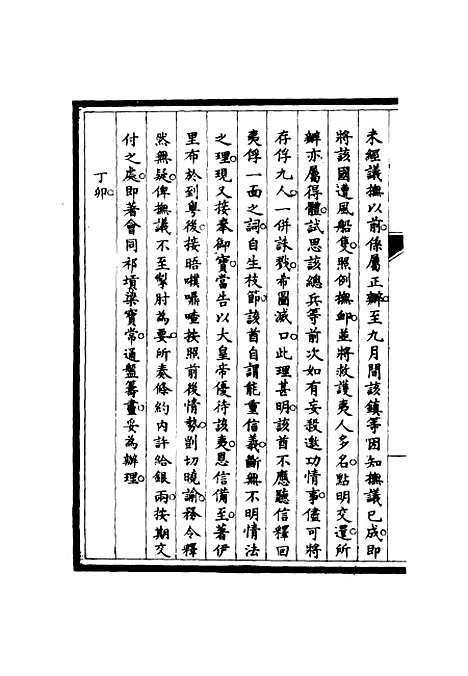 未經議撫以前係屬正辦至九月間該鎮等因知撫議已成即
將該國遭風船隻照例撫卹並將救護夷人多名點明交還所
辦亦屬得體試思該總兵等前次如有妄殺邀功情事儘可將
存俘九人一併誅戮希圖滅口此理甚明該酋不應聽信釋回
夷俘一面之詞自生枝節該酋自謂能重信義斷無不明情法
之理現又接奉御寶當告以大皇帝優待該夷恩信備至著伊
里布於到粵後接晤㗎嘓喳按照前後情勢剴切曉諭務令釋
然無疑俾撫議不至掣肘為要所奏條約內許給銀兩按期交
付之處即著會同祁𡎴梁寶常通盤籌畫妥為辦理
丁卯